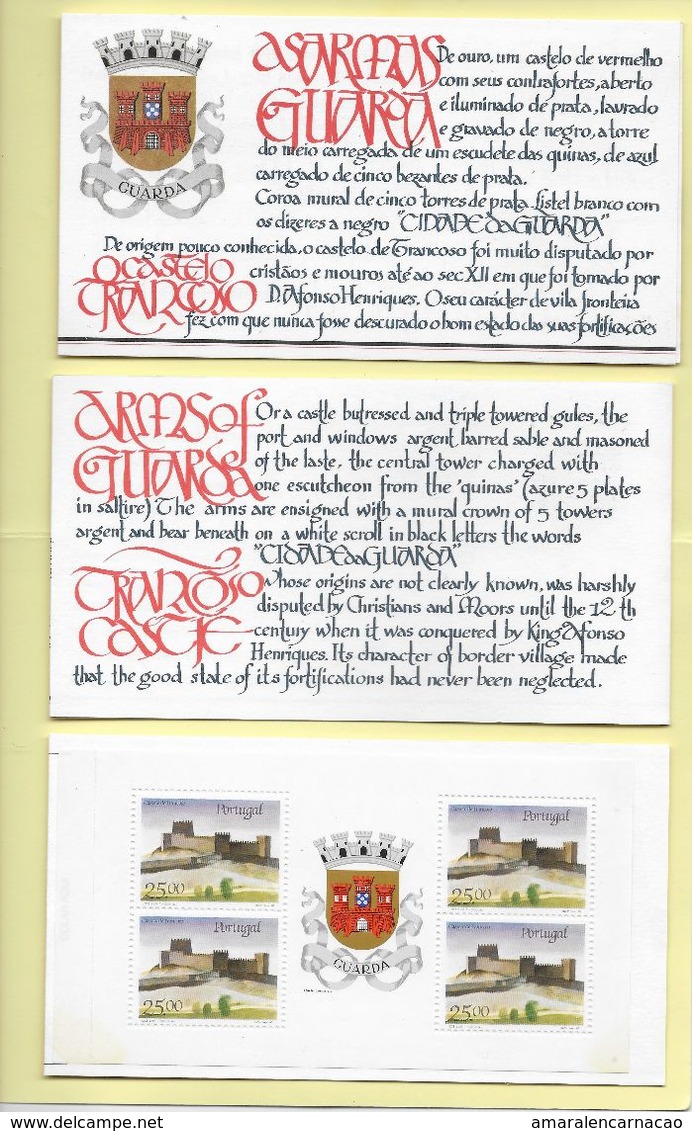 GUARDA
AS ARMAS
GUARDA
De ouro, um castelo de vermelho
com seus contrafortes, aberto
e iluminado de prata, lavrado
e gravado de negro, a torre
do meio carregada de um escudete das quinas, de azul
carregado de cinco bezantes de prata.
Coroa mural de cinco torres de prata. Listel branco com
os dizeres a negro "CIDADE da GUARDA"
O CASTELO
TRANCOSO
De origem pouco conhecida, o castelo de Trancoso foi muito disputado por
cristãos e mouros até ao sec XII em que foi tomado por
D. Afonso Henriques. O seu carácter de vila fronteira
fez com que nunca fosse descurado o bom estado das suas fortificações
ARMS of
GUARDA
Or a castle butressed and triple towered gules, the
port and windows argent, barred sable and masoned
of the laste, the central tower charged with
one escutcheon from the 'quinas' (azure 5 plates
in saltire) The arms are ensigned with a mural crown of 5 towers
argent and bear beneath on a white scroll in black letters the words
"CIDADE da GUARDA"
TRANCOSO
CASTLE
Whose origins are not clearly known, was harshly
disputed by Christians and Moors until the 12 th
century when it was conquered by King Afonso
Henriques. Its character of border village made
that the good state of its fortifications had never been neglected.
Castelo de Trancoso
Portugal
25.00
Castelo de Trancoso
Portugal
25.00
GUARDA
Castelo de Trancoso
Portugal
25.00
Castelo de Trancoso
Portugal
25.00
amaralencarnacao